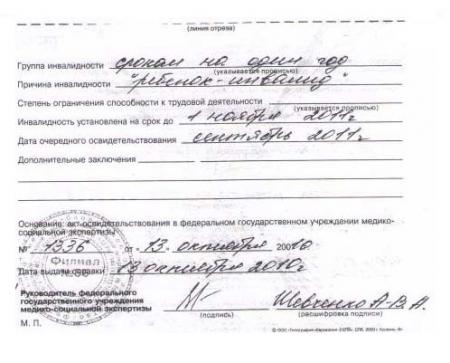 (линия отреза)
Группа инвалидности сроком на один год
(указывается прописью)
Причина инвалидности "ребенок-инвалид"
Степень ограничения способности к трудовой деятельности
(указывается прописью)
Инвалидность установлена на срок до 1 ноября 2011г
Дата очередного освидетельствования сентябрь 2011г
Дополнительные заключения
Основание: акт освидетельствования в федеральном государственном учреждении медико-
социальной экспертизы
№ 1336 от 13. октября 2010
Филиал
Дата выдачи справки 13 октября 2010г
Руководитель федерального
государственного учреждения
медико-социальной экспертизы Шевченко А-В.А.
(подпись) (расшифровка подписи)
М. П.